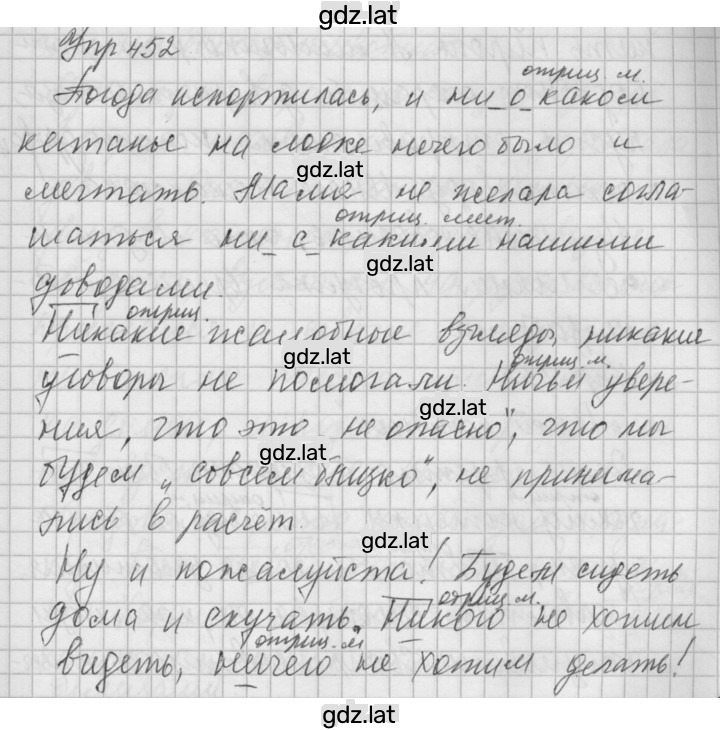 gdz.lat
Упр 452.
отриц. м.
Погода испортилась, и ни о каком
катанье на лодке нечего было и
gdz.lat
мечтать. Мама не желала согла-
отриц. мест.
шаться ни с какими нашими
gdz.lat
доводами.
отриц.
Никакие жалобные взгляды, никакие
gdz.lat
отриц. м.
уговоры не помогали. Ничьи увере-
gdz.lat
ния, что это не опасно", что мы
gdz.lat
будем "совсем близко", не принима-
лись в расчёт.
gdz.lat
Ну и пожалуйста! Будем сидеть
отриц м.
дома и скучать. Никого не хотим
отриц. м
видеть, ничего не хотим делать!
gdz.lat